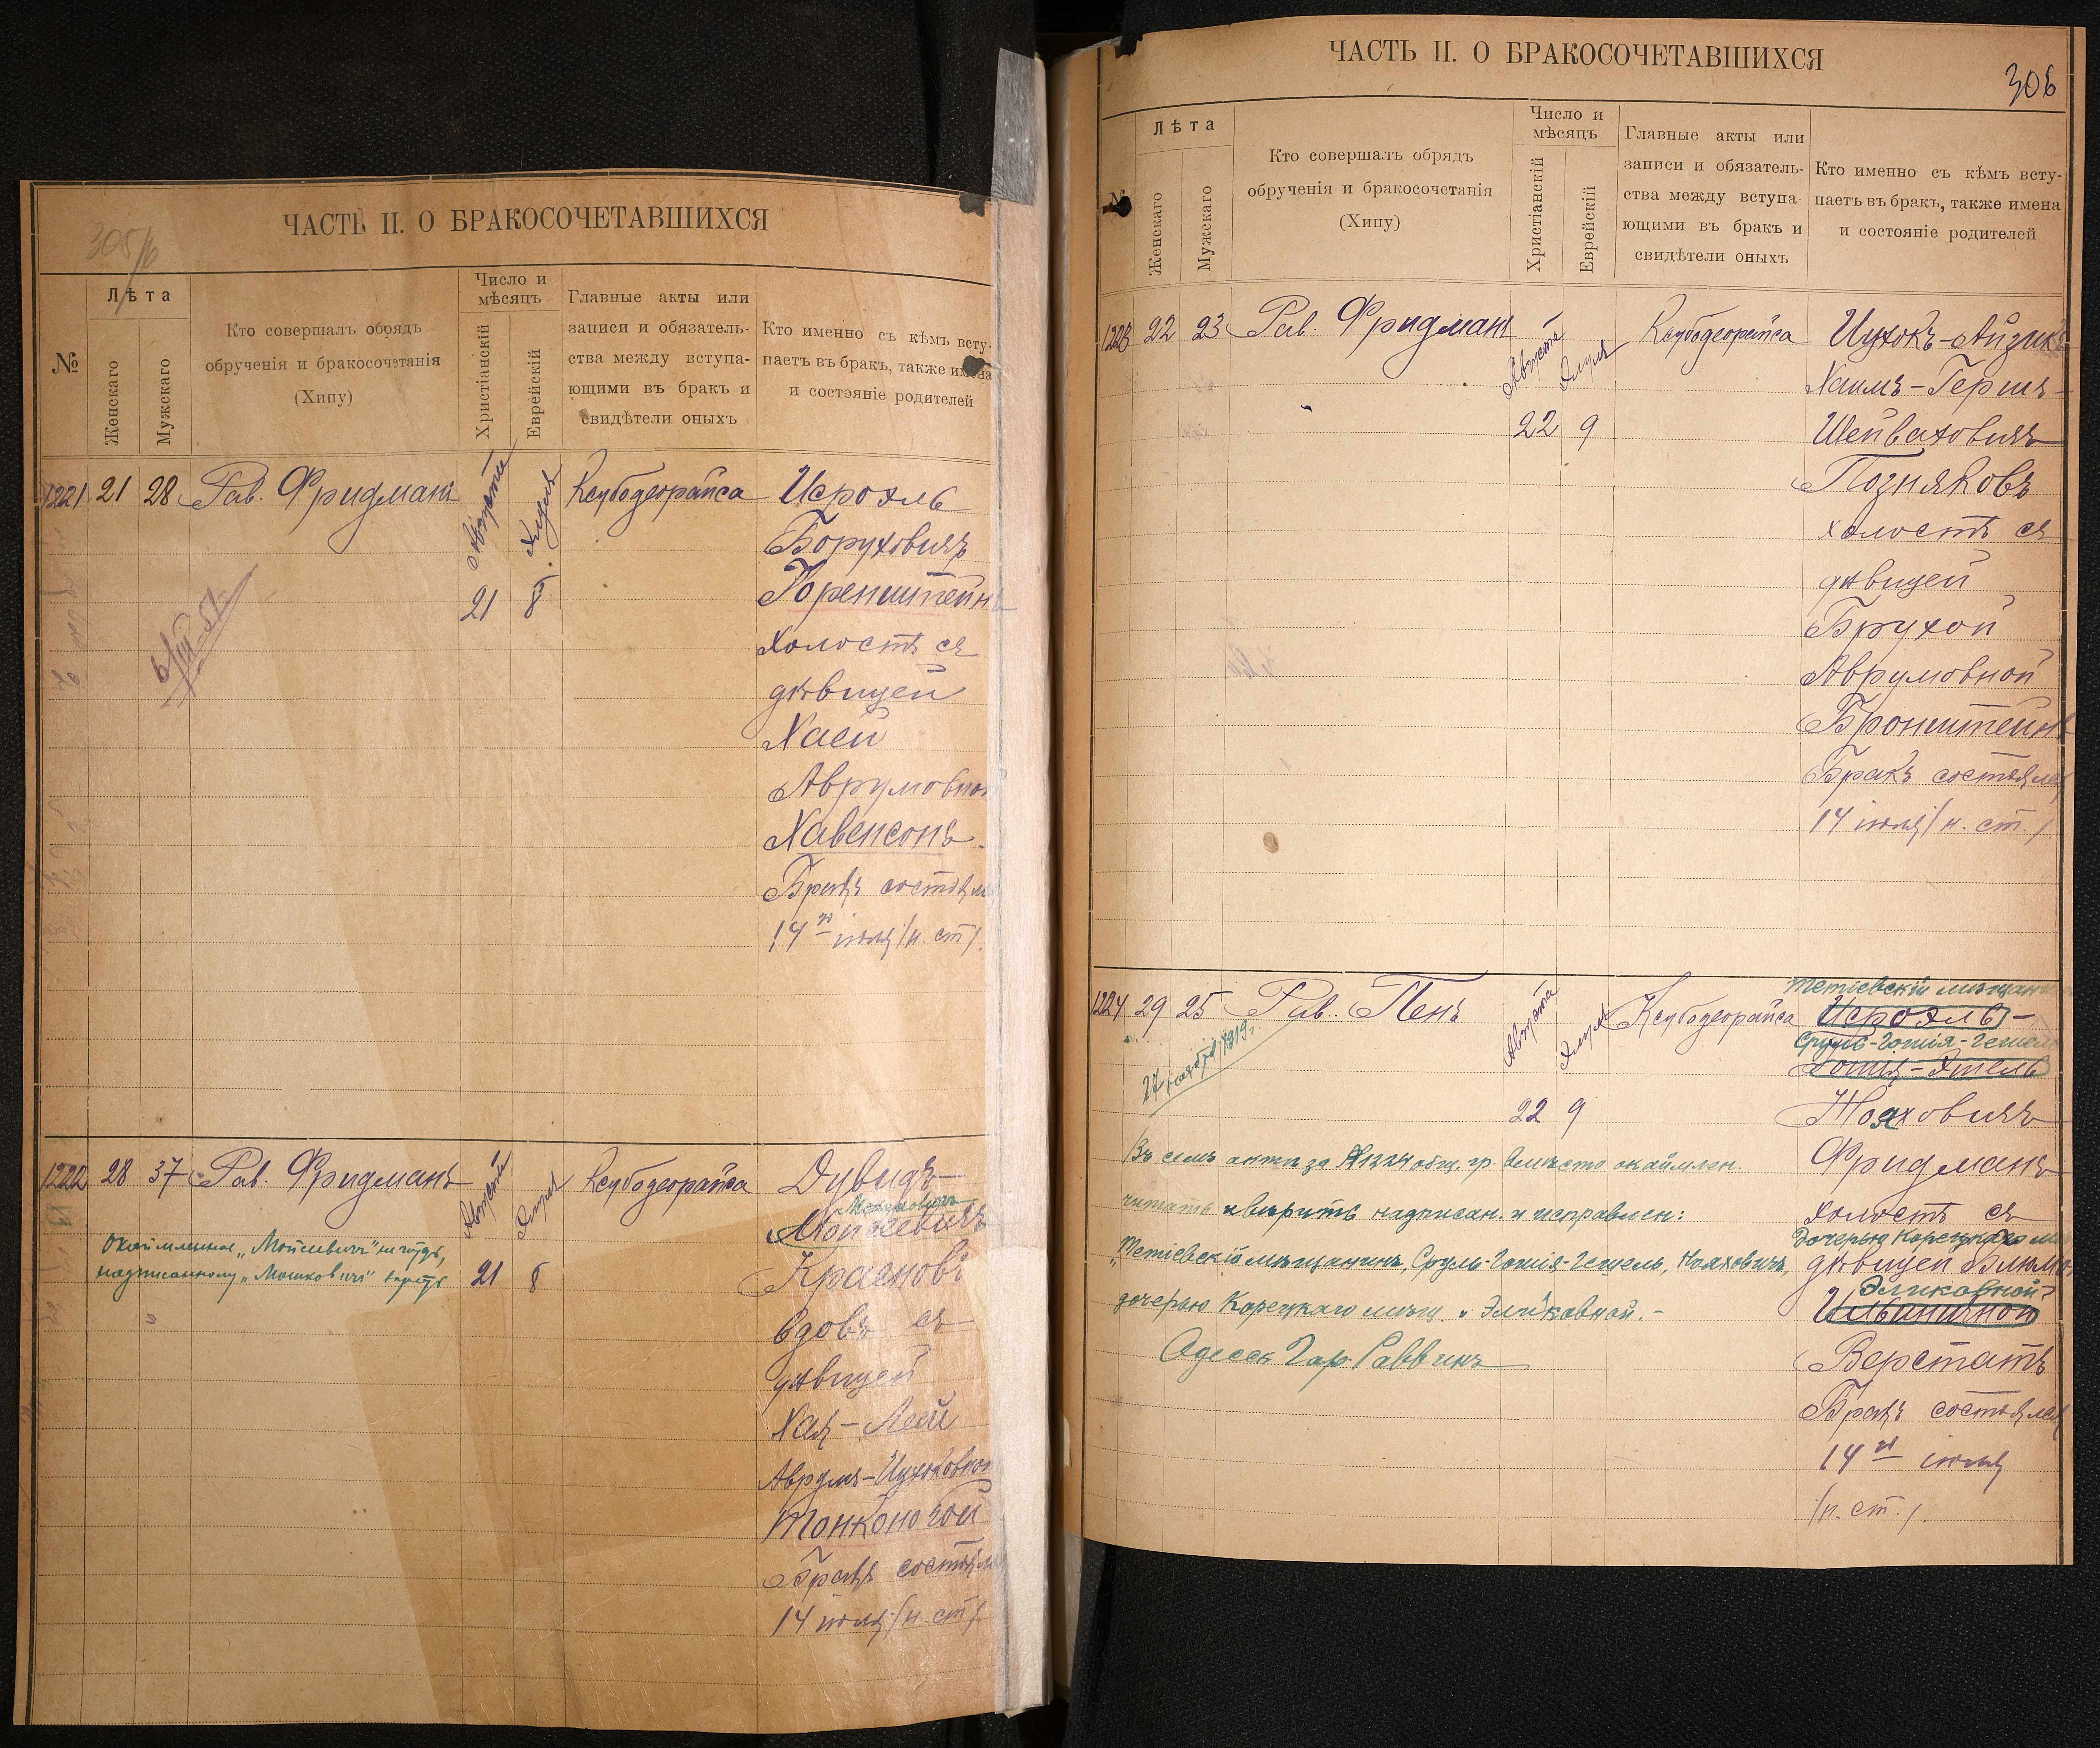 ЧАСТЬ II. О БРАКОСОЧЕТАВШИХСЯ
305/б
№
Лѣта
Женскаго
Мужскаго
Кто совершалъ обрядъ
обрученія и бракосочетанія
(Хипу)
Число и
мѣсяцъ
Христіанскій
Еврейскій
Главные акты или
записи и обязатель-
ства между вступа-
ющими въ бракъ и
свидѣтели оныхъ
Кто именно съ кѣмъ всту-
паетъ въ бракъ, также имена
и состояніе родителей
1221 21 28 Рав. Фридманъ Августа Элула Ксубодеорайса Исроэль
Боруховичъ
21 8 Горенштейнъ
холостъ съ
дѣвицей
Хаей
Аврумовной
Хавенсонъ.
Бракъ состоялся
14го іюля /н. ст/.
1222 28 37 Рав. Фридманъ Августа Элула Ксубодеорайса Дувидъ-
Мошковичъ
Мойсеевичъ
Окаймленное „Мойсеевичъ" не чтдъ,
надписанному „Мошковичъ" вѣрить
21 8 Красновъ
вдовъ съ
дѣвицей
Хая-Леей
Аврумъ-Ицхоковной
Тонконогой
Бракъ состоялся
14 іюля /н. ст/.
ЧАСТЬ II. О БРАКОСОЧЕТАВШИХСЯ
306
№
Лѣта
Женскаго
Мужскаго
Кто совершалъ обрядъ
обрученія и бракосочетанія
(Хипу)
Число и
мѣсяцъ
Христіанскій
Еврейскій
Главные акты или
записи и обязатель-
ства между вступа-
ющими въ бракъ и
свидѣтели оныхъ
Кто именно съ кѣмъ всту-
паетъ въ бракъ, также имена
и состояніе родителей
1223 22 23 Рав. Фридманъ Августа Элула Ксубодеорайса Ицхокъ-Айзикъ
Хаимъ-Гершъ-
22 9 Шейваховичъ
Позняковъ
холостъ съ
дѣвицей
Брухой
Аврумовной
Бронштейнъ
Бракъ состоялся
14 іюля /н. ст./
Тетіевскій мѣщанинъ
1224 29 25 Рав. Пенъ Августа Элула Ксубодеорайса Исроэль-
Сруль-Гошія-Гешель
Гошія-Эшель
27 ноября 1919 г.
22 9 Нояховичъ
Въ семъ актѣ за №1224 общ. гр. вмѣсто окаймлен.
читать и вѣрить надписан. и исправлен:
„Тетіевскій мѣщанинъ, Сруль-Гошія-Гешель, Нояховичъ,
дочерью Корецкаго мѣщ. и Эликовной. -
Одесск Гор. Раввинъ
Фридманъ
холостъ съ
дочерью Корецкаго мѣщ
дѣвицей Блюмой
Эликовной
Ильиничной
Верстатъ
Бракъ состоялся
14го іюля
/н. ст./.